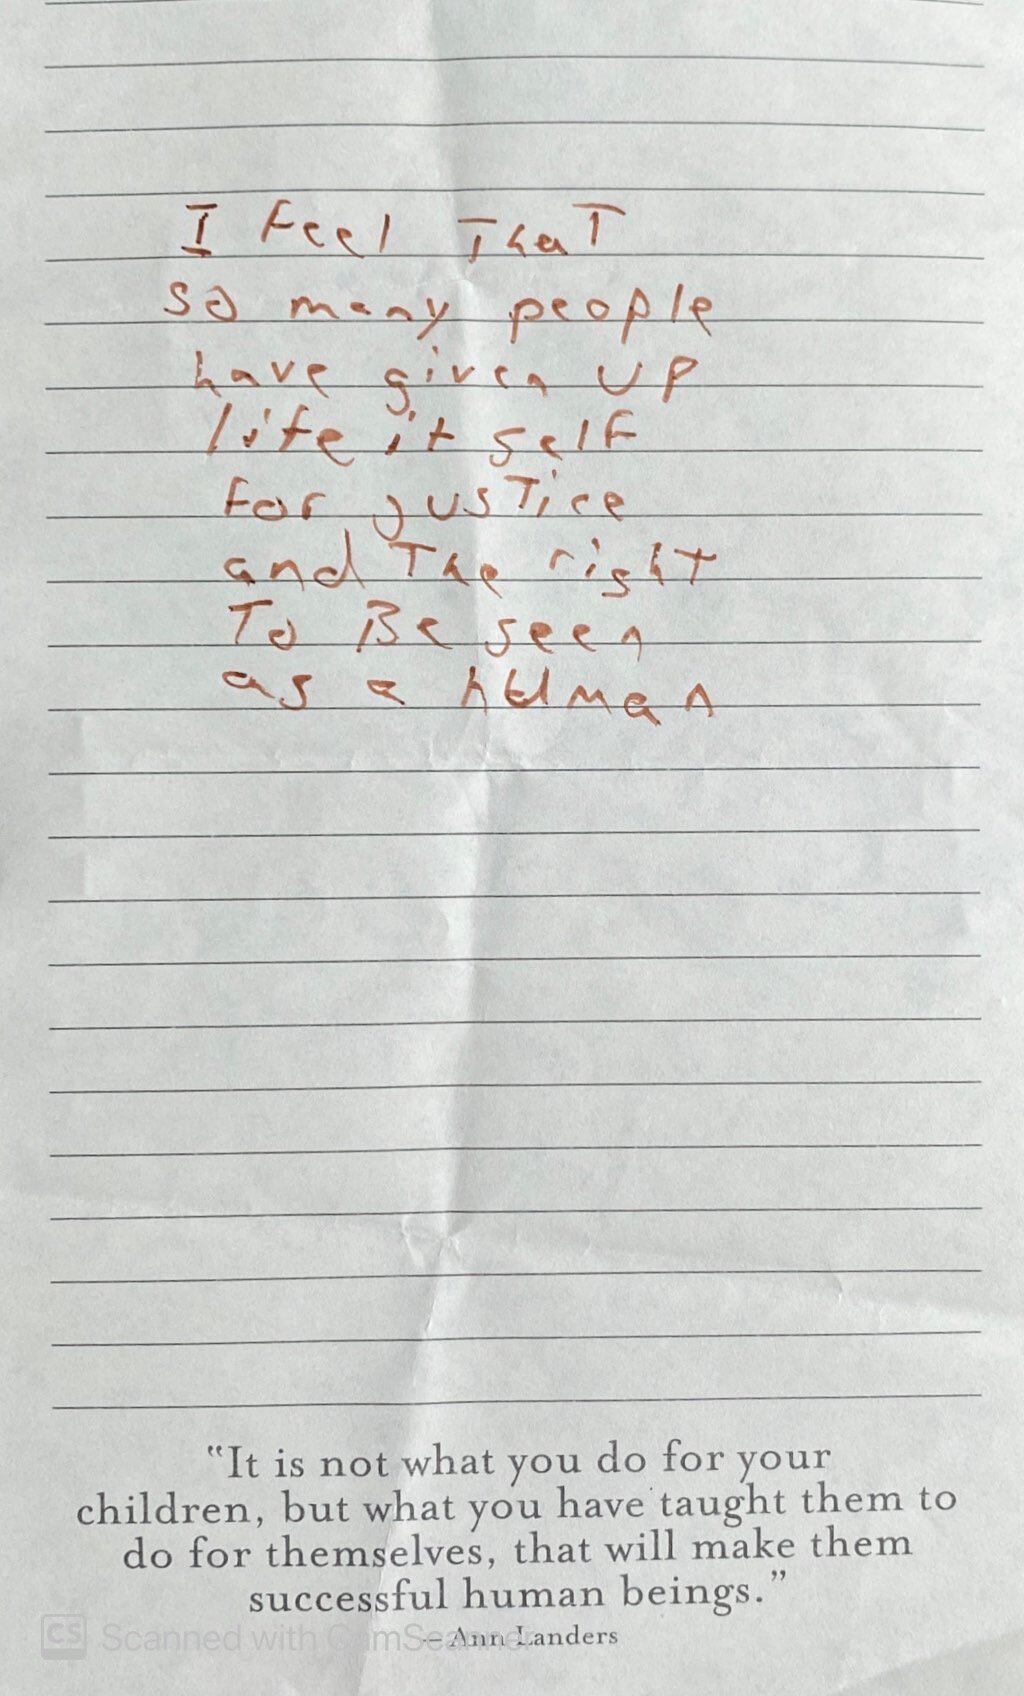 I feel That
so many people
have given up
life it self
for justice
and The right
To Be seen
as a human
"It is not what you do for your
children, but what you have taught them to
do for themselves, that will make them
successful human beings."
– Ann Landers
CS Scanned with CamScanner